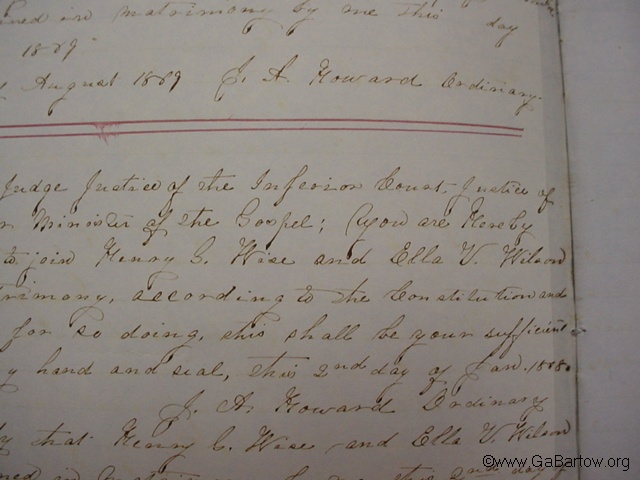 in matrimony by me this day
1889
August 1889 J. A. Howard Ordinary.
Judge Justice of the Inferior Court, Justice of
Minister of the Gospel; You are Hereby
to join Henry C. Wise and Ella V. Wilson
trimony, according to the Constitution and
for so doing, this shall be your sufficient
y hand and seal, this 2nd day of Jan. 188
J. A. Howard Ordinary
y that Henry C. Wise and Ella V. Wilson
2nd day
©www.GaBartow.org